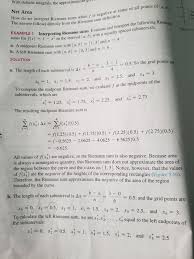 Net Area
How do we interpret Riemann sums when f is negative at some or all points of [a, b]?
The answer follows directly from the Riemann sum definition.
EXAMPLE 2 Interpreting Riemann sums Evaluate and interpret the following Riemann
sums for f(x) = 1 − x² on the interval [a, b] with n equally spaced subintervals.
a. A midpoint Riemann sum with [a, b] = [1, 3] and n = 4
b. A left Riemann sum with [a, b] = [0, 3] and n = 6
SOLUTION
a. The length of each subinterval is Δx = = 0.5. So the grid points are
x₀ = 1, x₁ = 1.5, x₂ = 2, x₃ = 2.5, and x₄ = 3.
To compute the midpoint Riemann sum, we evaluate f at the midpoints of the
subintervals, which are
x₁* = 1.25, x₂* = 1.75, x₃* = 2.25, and x₄* = 2.75.
The resulting midpoint Riemann sum is
= f(1.25)(0.5) + f(1.75)(0.5) + f(2.25)(0.5) + f(2.75)(0.5)
= −6.625.
All values of f(xₖ*) are negative, so the Riemann sum is also negative. Because area
is always a nonnegative quantity, this Riemann sum does not approximate the area of
the region between the curve and the x-axis on [1, 3]. Notice, however, that the values
of f(xₖ*) are the negative of the heights of the corresponding rectangles
Therefore, the Riemann sum approximates the negative of the area of the region
bounded by the curve.
b. The length of each subinterval is Δx = = 0.5, and the grid points are
x₀ = 0, x₁ = 0.5, x₂ = 1, x₃ = 1.5, x₄ = 2, x₅ = 2.5, and x₆ = 3.
To calculate the left Riemann sum, we set x₁*, x₂*, equal to the left endpoints of
the subintervals:
x₁* = 0, x₂* = 0.5, x₃* = 1, x₄* = 1.5, x₅* = 2, and x₆* = 2.5.